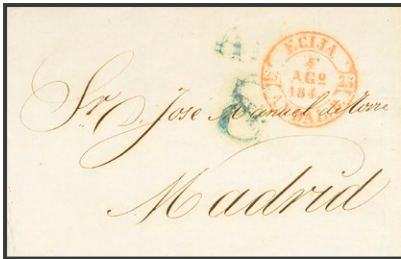 ECIJA
4
AGO
184
25
25
8
Sr. D. Jose Manuel de Torre
Madrid